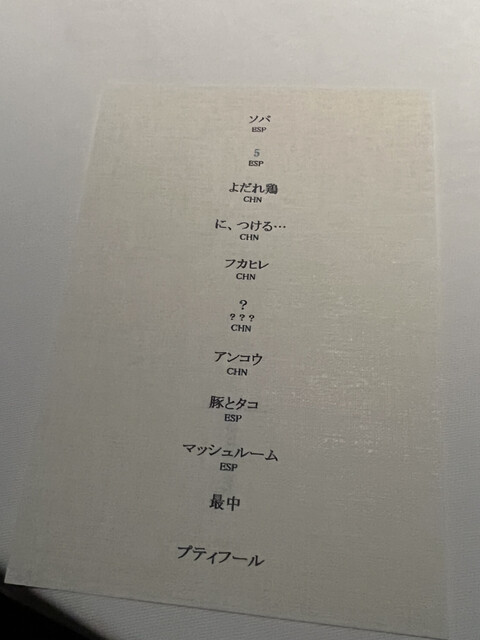 ソパ
ESP
5
ESP
よだれ鶏
CHN
に、つける…
CHN
フカヒレ
CHN
？
？？？
CHN
アンコウ
CHN
豚とタコ
ESP
マッシュルーム
ESP
最中
プティフール